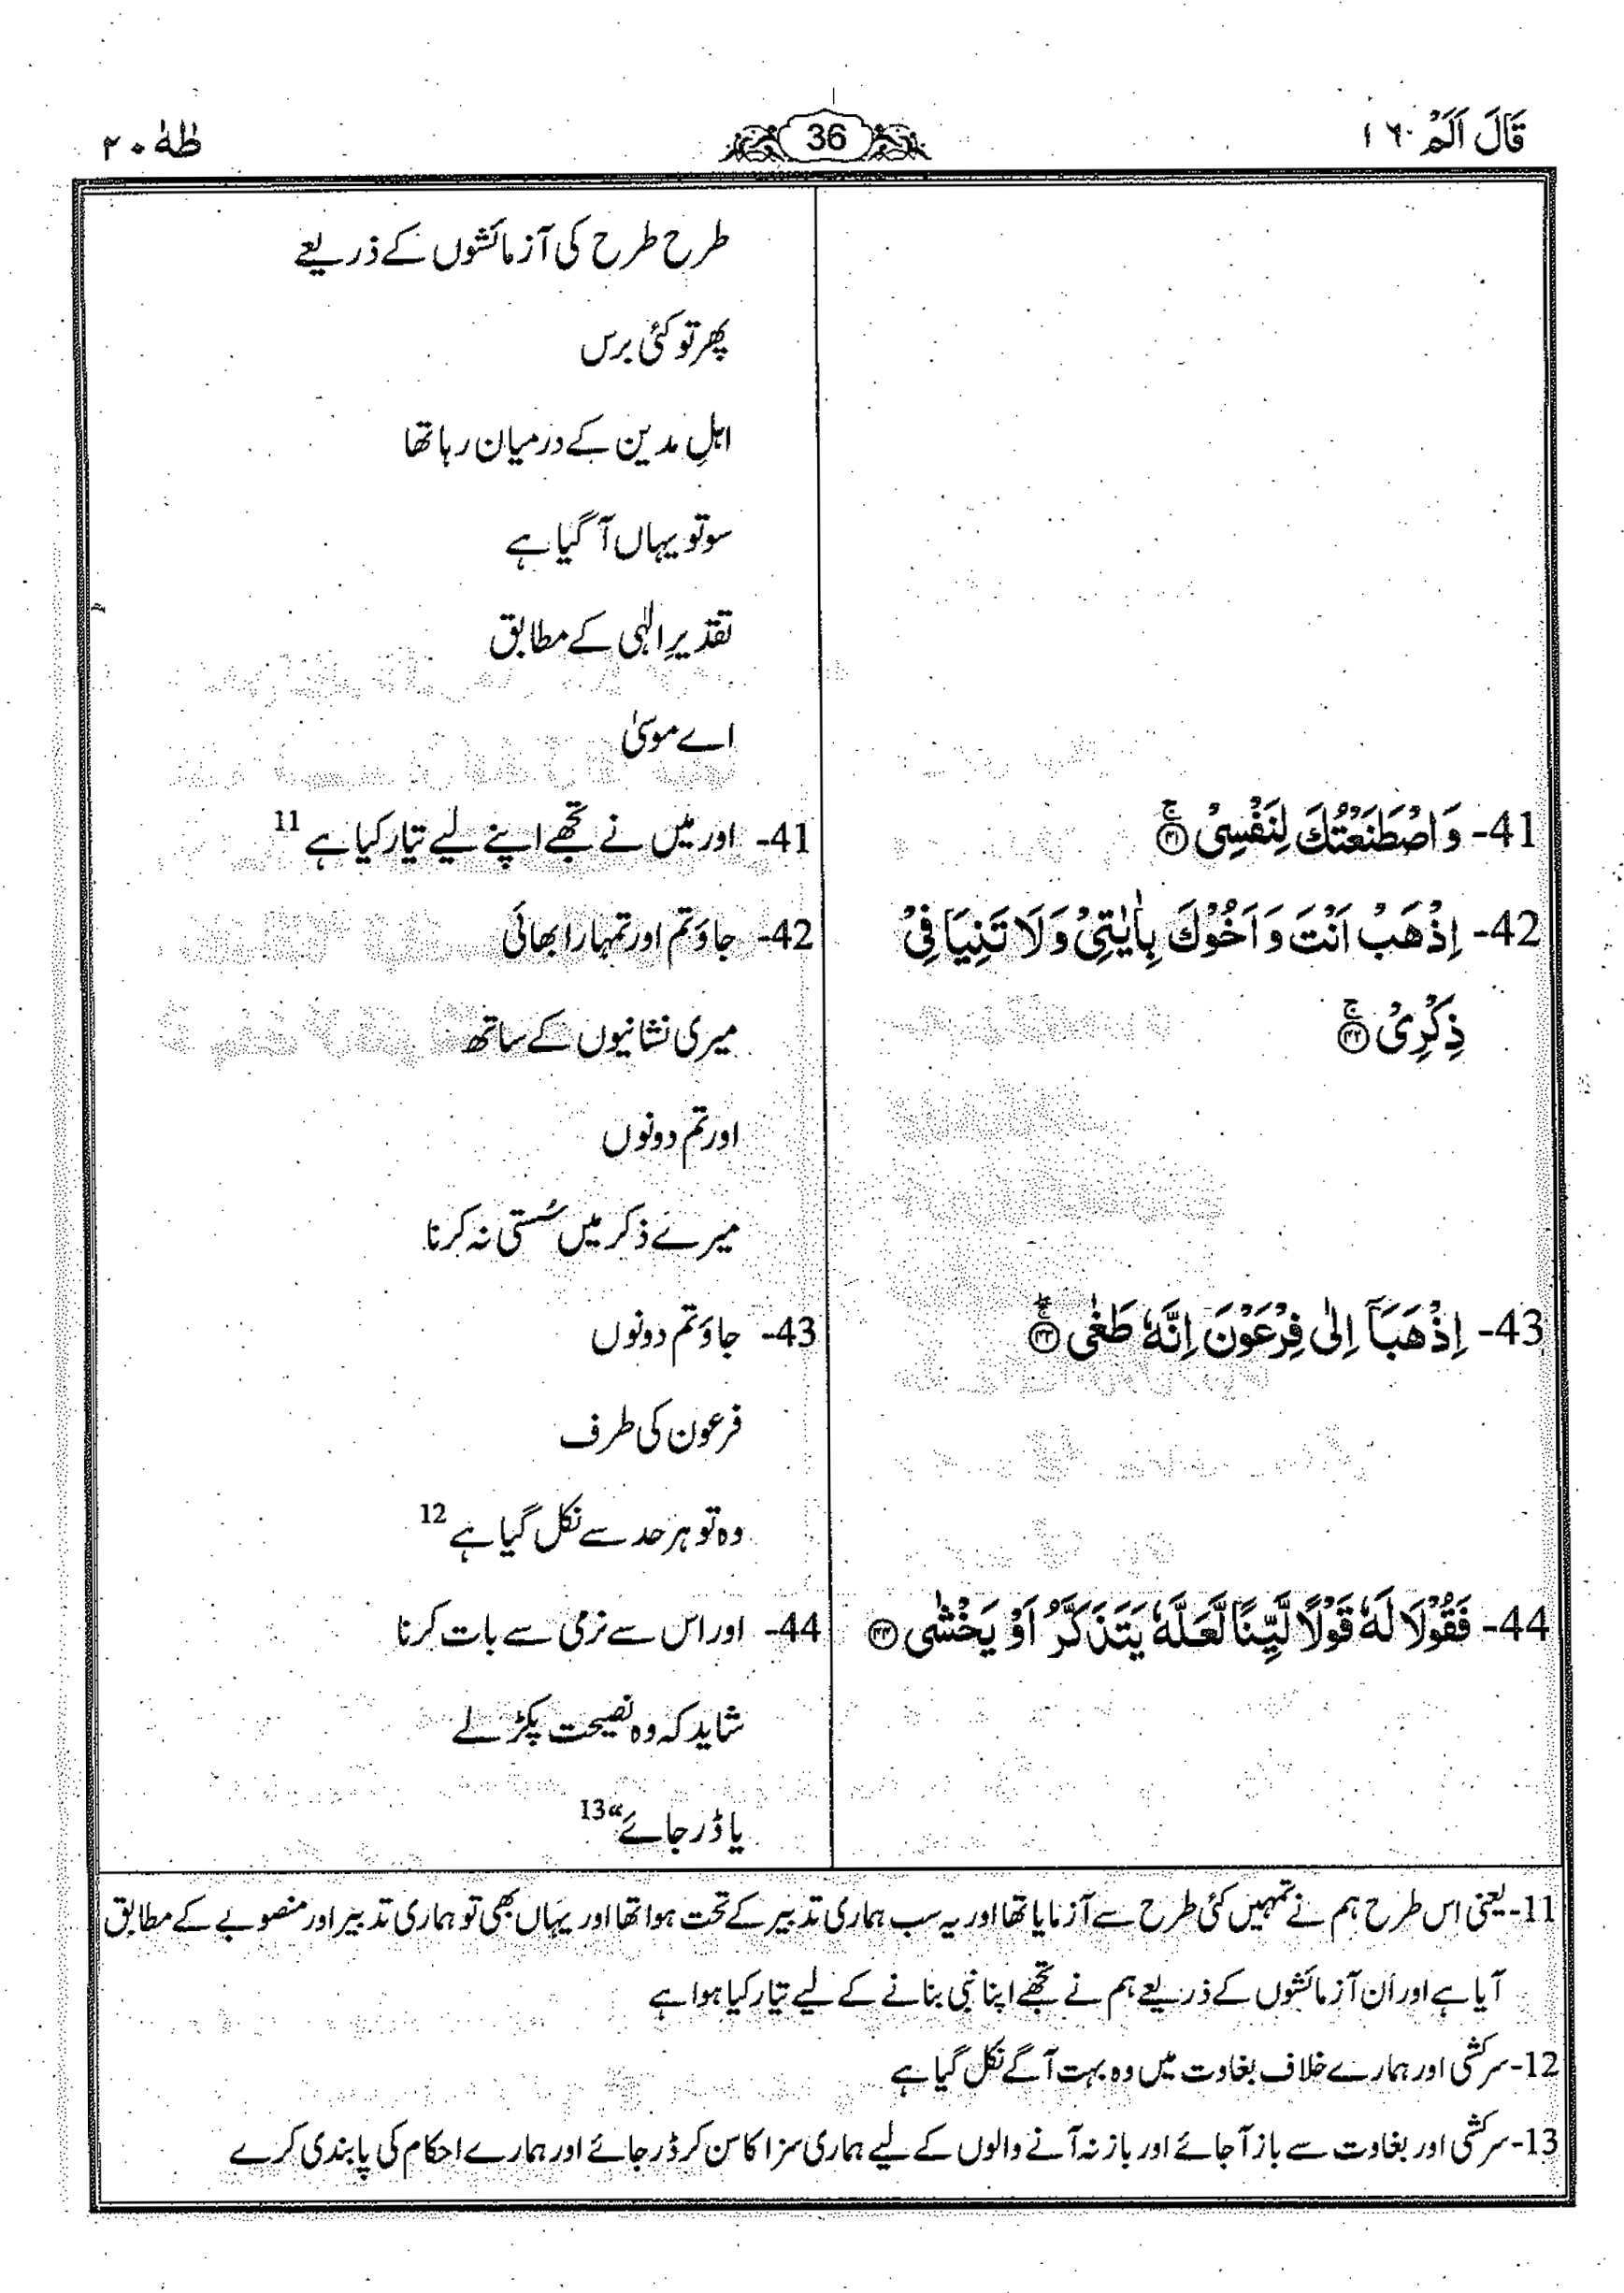 قَالَ اَلَمْ ١٦
36
طٰهٰ ٢٠
طرح طرح کی آزمائشوں کے ذریعے
پھر تو کئی برس
اہلِ مدین کے درمیان رہا تھا
سو تو یہاں آ گیا ہے
تقدیرِ الٰہی کے مطابق
اے موسیٰ
41- وَاصْطَنَعْتُكَ لِنَفْسِیْ ۚ﴿۴۱﴾
41- اور میں نے تجھے اپنے لیے تیار کیا ہے 11
42- اِذْهَبْ اَنْتَ وَ اَخُوْكَ بِاٰیٰتِیْ وَلَا تَنِیَا فِیْ
ذِكْرِیْ ۚ﴿۴۲﴾
42- جاؤ تم اور تمہارا بھائی
میری نشانیوں کے ساتھ
اور تم دونوں
میرے ذکر میں سُستی نہ کرنا
43- اِذْهَبَاۤ اِلٰی فِرْعَوْنَ اِنَّهٗ طَغٰی ۚ﴿۴۳﴾
43- جاؤ تم دونوں
فرعون کی طرف
وہ تو ہر حد سے نکل گیا ہے 12
44- فَقُوْلَا لَهٗ قَوْلًا لَّیِّنًا لَّعَلَّهٗ یَتَذَكَّرُ اَوْ یَخْشٰی ﴿۴۴﴾
44- اور اس سے نرمی سے بات کرنا
شاید کہ وہ نصیحت پکڑ لے
یا ڈر جائے“ 13
11- یعنی اس طرح ہم نے تمہیں کئی طرح سے آزمایا تھا اور یہ سب ہماری تدبیر کے تحت ہوا تھا اور یہاں بھی تو ہماری تدبیر اور منصوبے کے مطابق
آیا ہے اور ان آزمائشوں کے ذریعے ہم نے تجھے اپنا نبی بنانے کے لیے تیار کیا ہوا ہے
12- سرکشی اور ہمارے خلاف بغاوت میں وہ بہت آگے نکل گیا ہے
13- سرکشی اور بغاوت سے باز آ جائے اور باز نہ آنے والوں کے لیے ہماری سزا کا سن کر ڈر جائے اور ہمارے احکام کی پابندی کرے